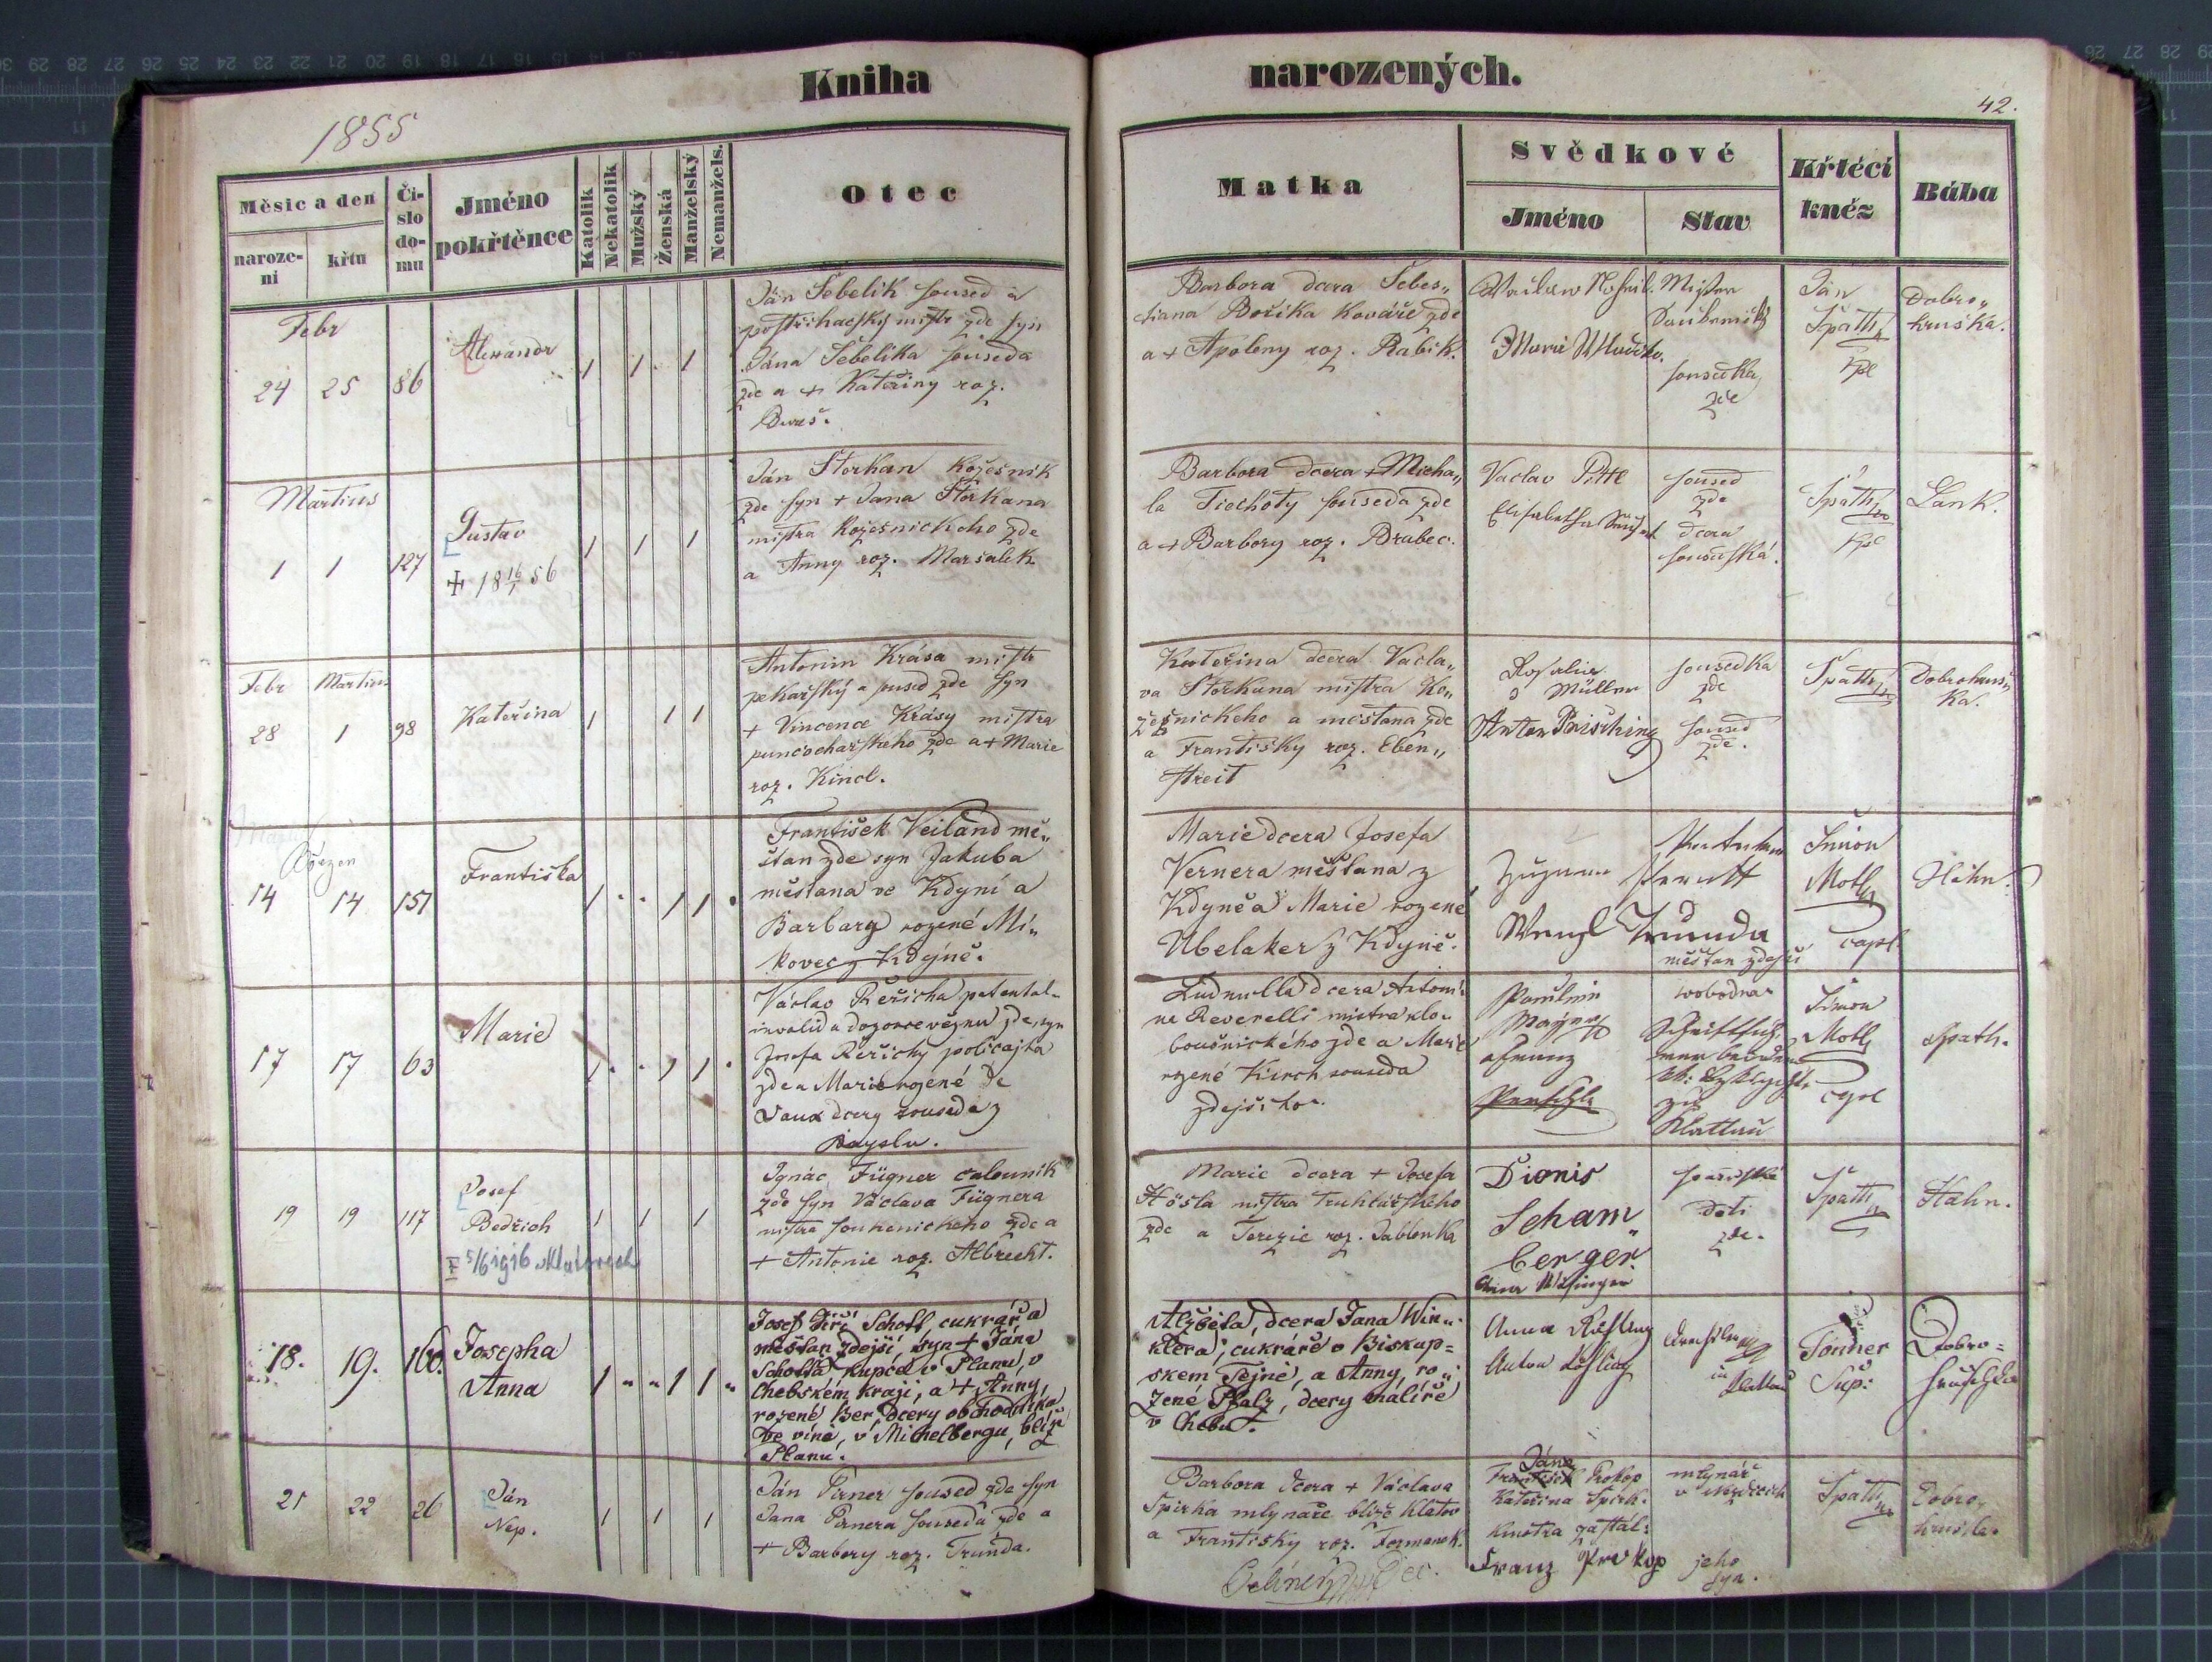 Kniha narozených.
1855
42.
Měsíc a den
naroze-
ni
křtu
Či-
slo
do-
mu
Jméno
pokřtěnce
Katolík
Nekatolík
Mužský
Ženská
Manželský
Nemanžels.
Otec
Matka
Svědkové
Jméno
Stav
Křtécí
kněz
Bába
Febr
24 25 86
Alexandr
Ján Šebelík soused a
postřihačský mistr zde syn
Jána Šebelíka souseda
zde a + Kateřiny roz.
Bureš.
Barbora dcera Šebes„
tiana Božíka Kováře zde
a + Apoleny roz. Rabik.
sousedka
zde
Ján
Špatt
kpl
Dobro„
hruška.
Martius
1 1 127
Gustav
+ 18 16/1 56
Ján Štorkan Kožešník
zde syn + Jana Štorkana
mistra Kožešnickeho zde
a Anny roz. Maršalek
Barbora dcera + Micha„
la Tiechoty souseda zde
a + Barbory roz. Brabec.
Vaclav Pittl
soused
zde
Elisabetha
dcera
sousedská.
Špatt
kpl
Lank.
Febr Martius
28 1 98
Kateřina
Antonin Krása mistr
pekařský a soused zde syn
+ Vincence Krásy mistra
punčochařskeho zde a + Marie
roz. Kincl.
Kateřina dcera Vacla„
va Štorkana mistra Ko„
žešnickeho a mešťana zde
a Františky roz. Eben„
streit
Rosalia
Müller
sousedka
zde
Anton Prisching
soused
zde.
Špatt
Dobrohruš„
ka.
Březen
14 14 157
Františka
František Veiland mě„
štan zde syn Jakuba
měštana ve Kdyní a
Barbary rozené Mi„
kovec z Kdýně.
Marie dcera Josefa
Vernera měštana z
Kdyně a Marie rozené
Ubelaker z Kdyně.
Wenzl Trunda
měštan zdejší
Šimon
Motl
capl
Hahn.
17 17 63
Marie
Václav Řeřicha patental-
invalid a dozorce věznů zde, syn
Josefa Řeřichy policajta
zde a Marie rozené De
Vaux dcery souseda z
Ludmilla dcera Antoni-
na Reverelli mistra klo-
boučnického zde a Marie
rozené Kirch souseda
zdejšího.
Paulin
Mayer
a Franz
zu
Klattau
Šimon
Motl
capl
Spath.
19 19 117
Josef
Bedřich
+ 5/6 1916 v Klatovech
Ignác Fügner calouník
zde syn Václava Fügnera
mistra soukenickeho zde a
+ Antonie roz. Albrecht.
Marie dcera + Josefa
Hösla mistra truhlářskeho
zde a Terezie roz. Jablonka
Dionis
Scham„
berger.
děti
zde.
Špatt
Hahn.
18. 19. 160.
Josepha
Anna
Josef Jiří Schott, cukrář a
měšťan zdejší, syn + Jána
Schotta, kupce v Planu, v
Chebském kraji, a + Anny,
rozené Ber, dcery obchodníka
ve víně, v Michelbergu, blíže
Planu.
Alžběta, dcera Jana Win-
klera, cukráře v Biskup=
skem Tejně, a Anny, ro„
zené Pfalz, dcery malíře
v Chebu.
Anna Rösling
Anton Rösling
in
Klattau
Tonner
Sup:
Dobro=
hruschka
21 22 26
Ján
Nep.
Ján Pirner soused zde syn
Jana Pirnera souseda zde a
+ Barbory roz. Trunda.
Barbora dcera + Václava
Spirka mlynaře blíže Klatov
a Františky roz. Formanek.
Jána
František Prokop
Kateřina Spirk.
kmotra zastál:
Franz Prokop jeho
syn.
mlynář
Špatt
Dobro„
hruška.